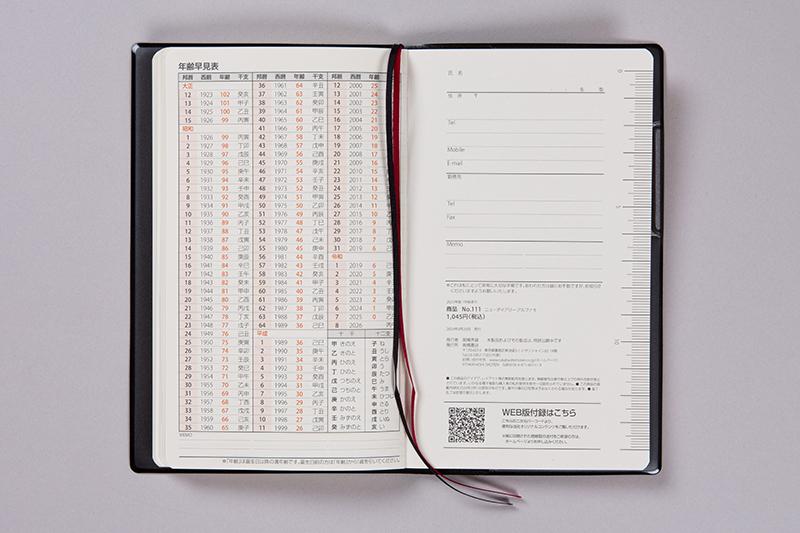 年齢早見表
邦暦 西暦 年齢 干支
大正
12 1923 102 癸亥
13 1924 101 甲子
14 1925 100 乙丑
15 1926 99 丙寅
昭和
1 1926 99 丙寅
2 1927 98 丁卯
3 1928 97 戊辰
4 1929 96 己巳
5 1930 95 庚午
6 1931 94 辛未
7 1932 93 壬申
8 1933 92 癸酉
9 1934 91 甲戌
10 1935 90 乙亥
11 1936 89 丙子
12 1937 88 丁丑
13 1938 87 戊寅
14 1939 86 己卯
15 1940 85 庚辰
16 1941 84 辛巳
17 1942 83 壬午
18 1943 82 癸未
19 1944 81 甲申
20 1945 80 乙酉
21 1946 79 丙戌
22 1947 78 丁亥
23 1948 77 戊子
24 1949 76 己丑
25 1950 75 庚寅
26 1951 74 辛卯
27 1952 73 壬辰
28 1953 72 癸巳
29 1954 71 甲午
30 1955 70 乙未
31 1956 69 丙申
32 1957 68 丁酉
33 1958 67 戊戌
34 1959 66 己亥
35 1960 65 庚子
邦暦 西暦 年齢 干支
36 1961 64 辛丑
37 1962 63 壬寅
38 1963 62 癸卯
39 1964 61 甲辰
40 1965 60 乙巳
41 1966 59 丙午
42 1967 58 丁未
43 1968 57 戊申
44 1969 56 己酉
45 1970 55 庚戌
46 1971 54 辛亥
47 1972 53 壬子
48 1973 52 癸丑
49 1974 51 甲寅
50 1975 50 乙卯
51 1976 49 丙辰
52 1977 48 丁巳
53 1978 47 戊午
54 1979 46 己未
55 1980 45 庚申
56 1981 44 辛酉
57 1982 43 壬戌
58 1983 42 癸亥
59 1984 41 甲子
60 1985 40 乙丑
61 1986 39 丙寅
62 1987 38 丁卯
63 1988 37 戊辰
64 1989 36 己巳
平成
1 1989 36 己巳
2 1990 35 庚午
3 1991 34 辛未
4 1992 33 壬申
5 1993 32 癸酉
6 1994 31 甲戌
7 1995 30 乙亥
8 1996 29 丙子
9 1997 28 丁丑
10 1998 27 戊寅
11 1999 26 己卯
邦暦 西暦 年齢
12 2000 25
13 2001 24
14 2002 23
15 2003 22
16 2004 21
17 2005 20
18 2006 19
19 2007 18
20 2008 17
21 2009 16
22 2010 15
23 2011 14
24 2012 13
25 2013 12
26 2014 11
27 2015 10
28 2016 9
29 2017 8
30 2018 7
31 2019 6
令和
1 2019 6
2 2020 5
3 2021 4
4 2022 3
5 2023 2
6 2024 1
7 2025 0
8 2026
十干 十二支
甲 きのえ 子 ね
乙 きのと 丑 うし
丙 ひのえ 寅 とら
丁 ひのと 卯 う
戊 つちのえ 辰 たつ
己 つちのと 巳 み
庚 かのえ 午 うま
辛 かのと 未 ひつじ
壬 みずのえ 申 さる
癸 みずのと 酉 とり
戌 いぬ
亥 い
MEMO
※「年齢」は誕生日以降の満年齢です。誕生日前の方は「年齢」から1歳を引いてください。
氏 名
住 所 〒
Tel
Mobile
E-mail
勤務先
Tel
Fax
Memo
商品 No.111 ニューダイアリー アルファ 6
1,045円(税込)
WEB版付録はこちら